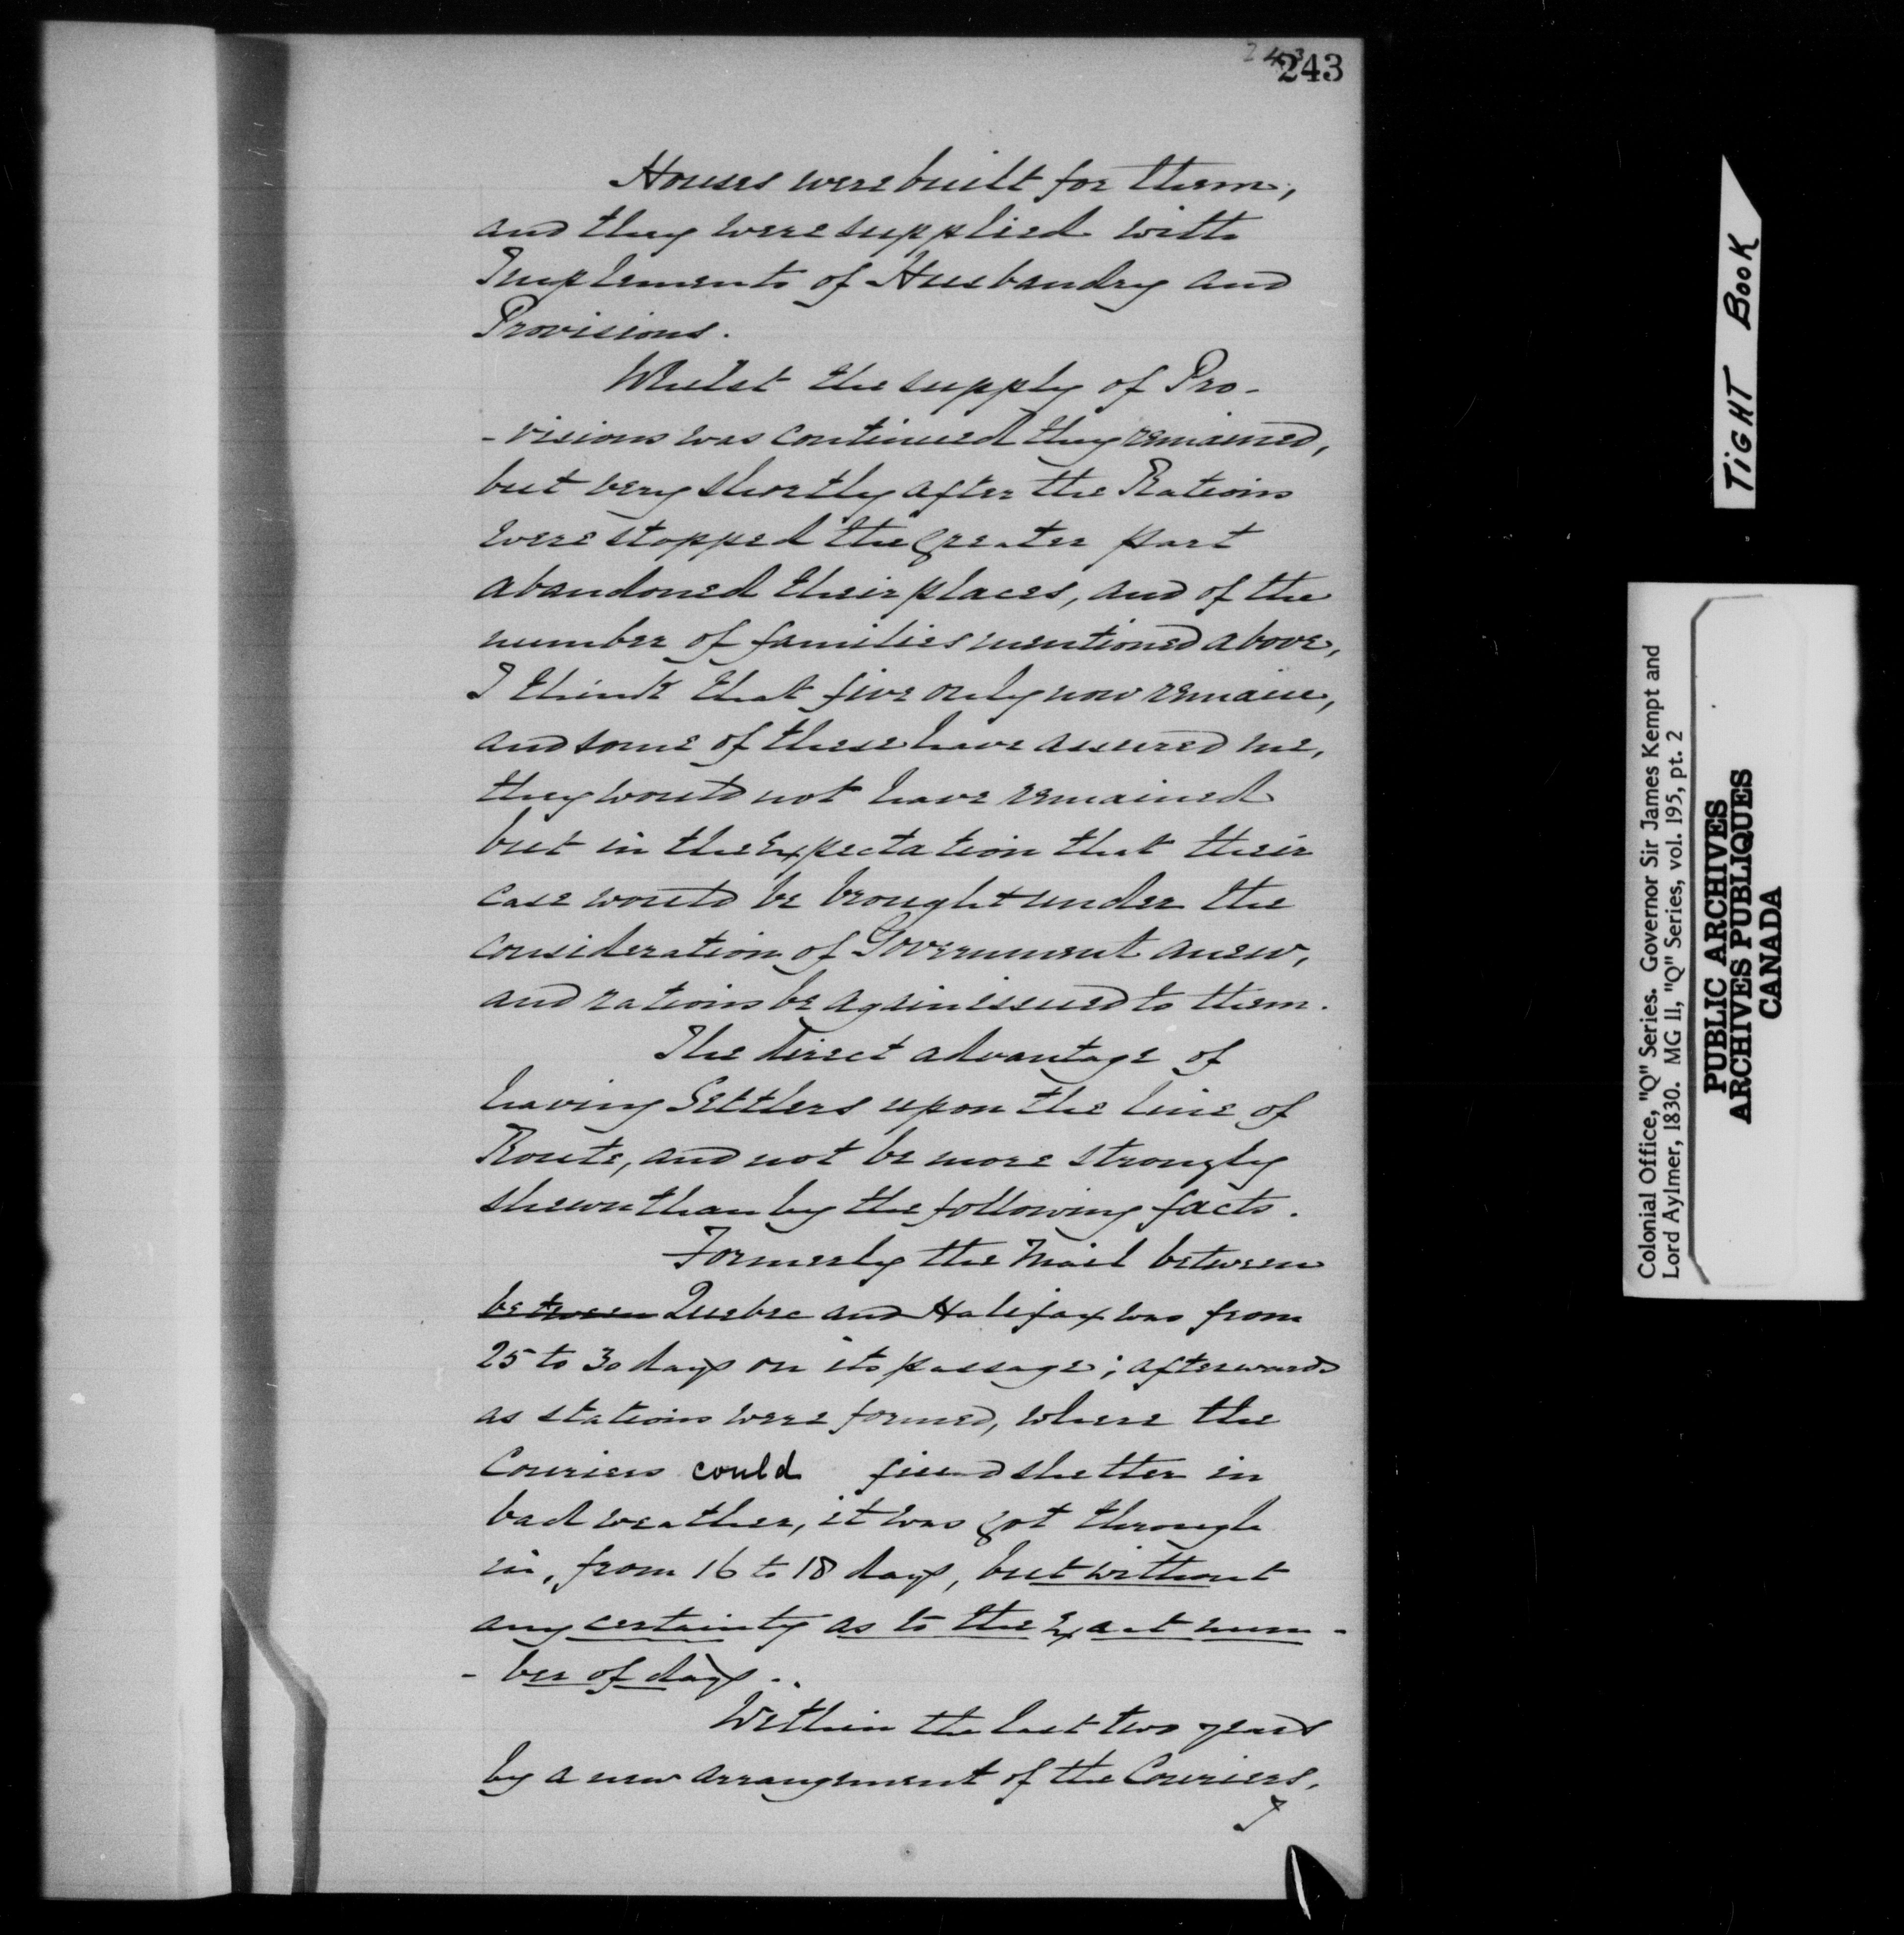 243
243
Houses were built for them,
and they were supplied with
Implements of Husbandry and
Provisions.
Whilst the supply of Pro-
-visions was continued they remained,
but very shortly after the Rations
were stopped the greater part
abandoned their places, and of the
number of families mentioned above,
I think that five only now remain,
and some of these have assured me,
they would not have remained
but in the Expectation that their
case would be brought under the
consideration of Government anew,
and rations be again issued to them.
The direct advantage of
having Settlers upon the line of
Route, and not be more strongly
shewn than by the following facts.
Formerly the Mail between
between Quebec and Halifax was from
25 to 30 days on its passage; afterwards
as stations were formed, where the
Couriers could find shelter in
bad weather, it was got through
in, from 16 to 18 days, but without
any certainty as to the Exact num-
-ber of days.
Within the last two years
by a new arrangement of the Couriers,
I
TIGHT BOOK
Colonial Office, "Q" Series. Governor Sir James Kempt and
Lord Aylmer, 1830. MG 11, "Q" Series, vol. 195, pt. 2
PUBLIC ARCHIVES
ARCHIVES PUBLIQUES
CANADA